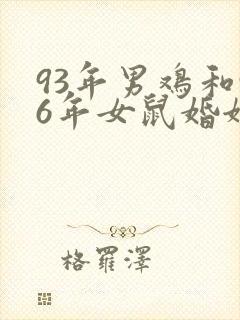 93年男鸡和
6年女鼠婚
格羅澤